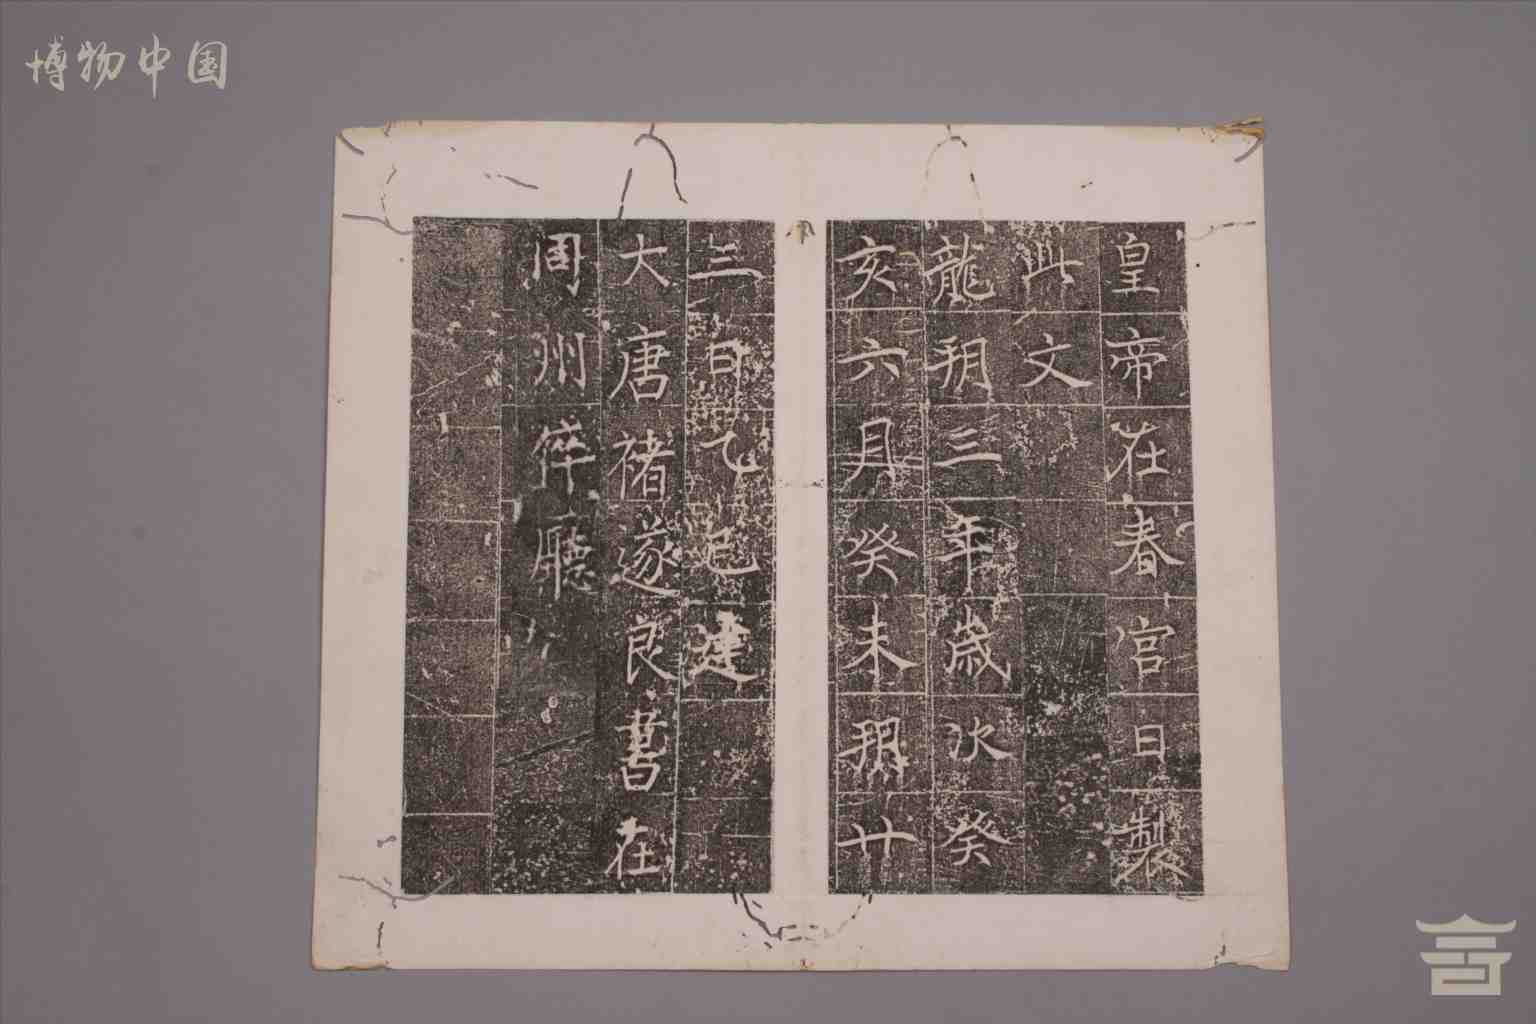 博物中国
皇帝在春宫日製
此文
龍朔三年歲次癸
亥六月癸未朔廿
三日乙巳建
大唐褚遂良書在
同州倅廳